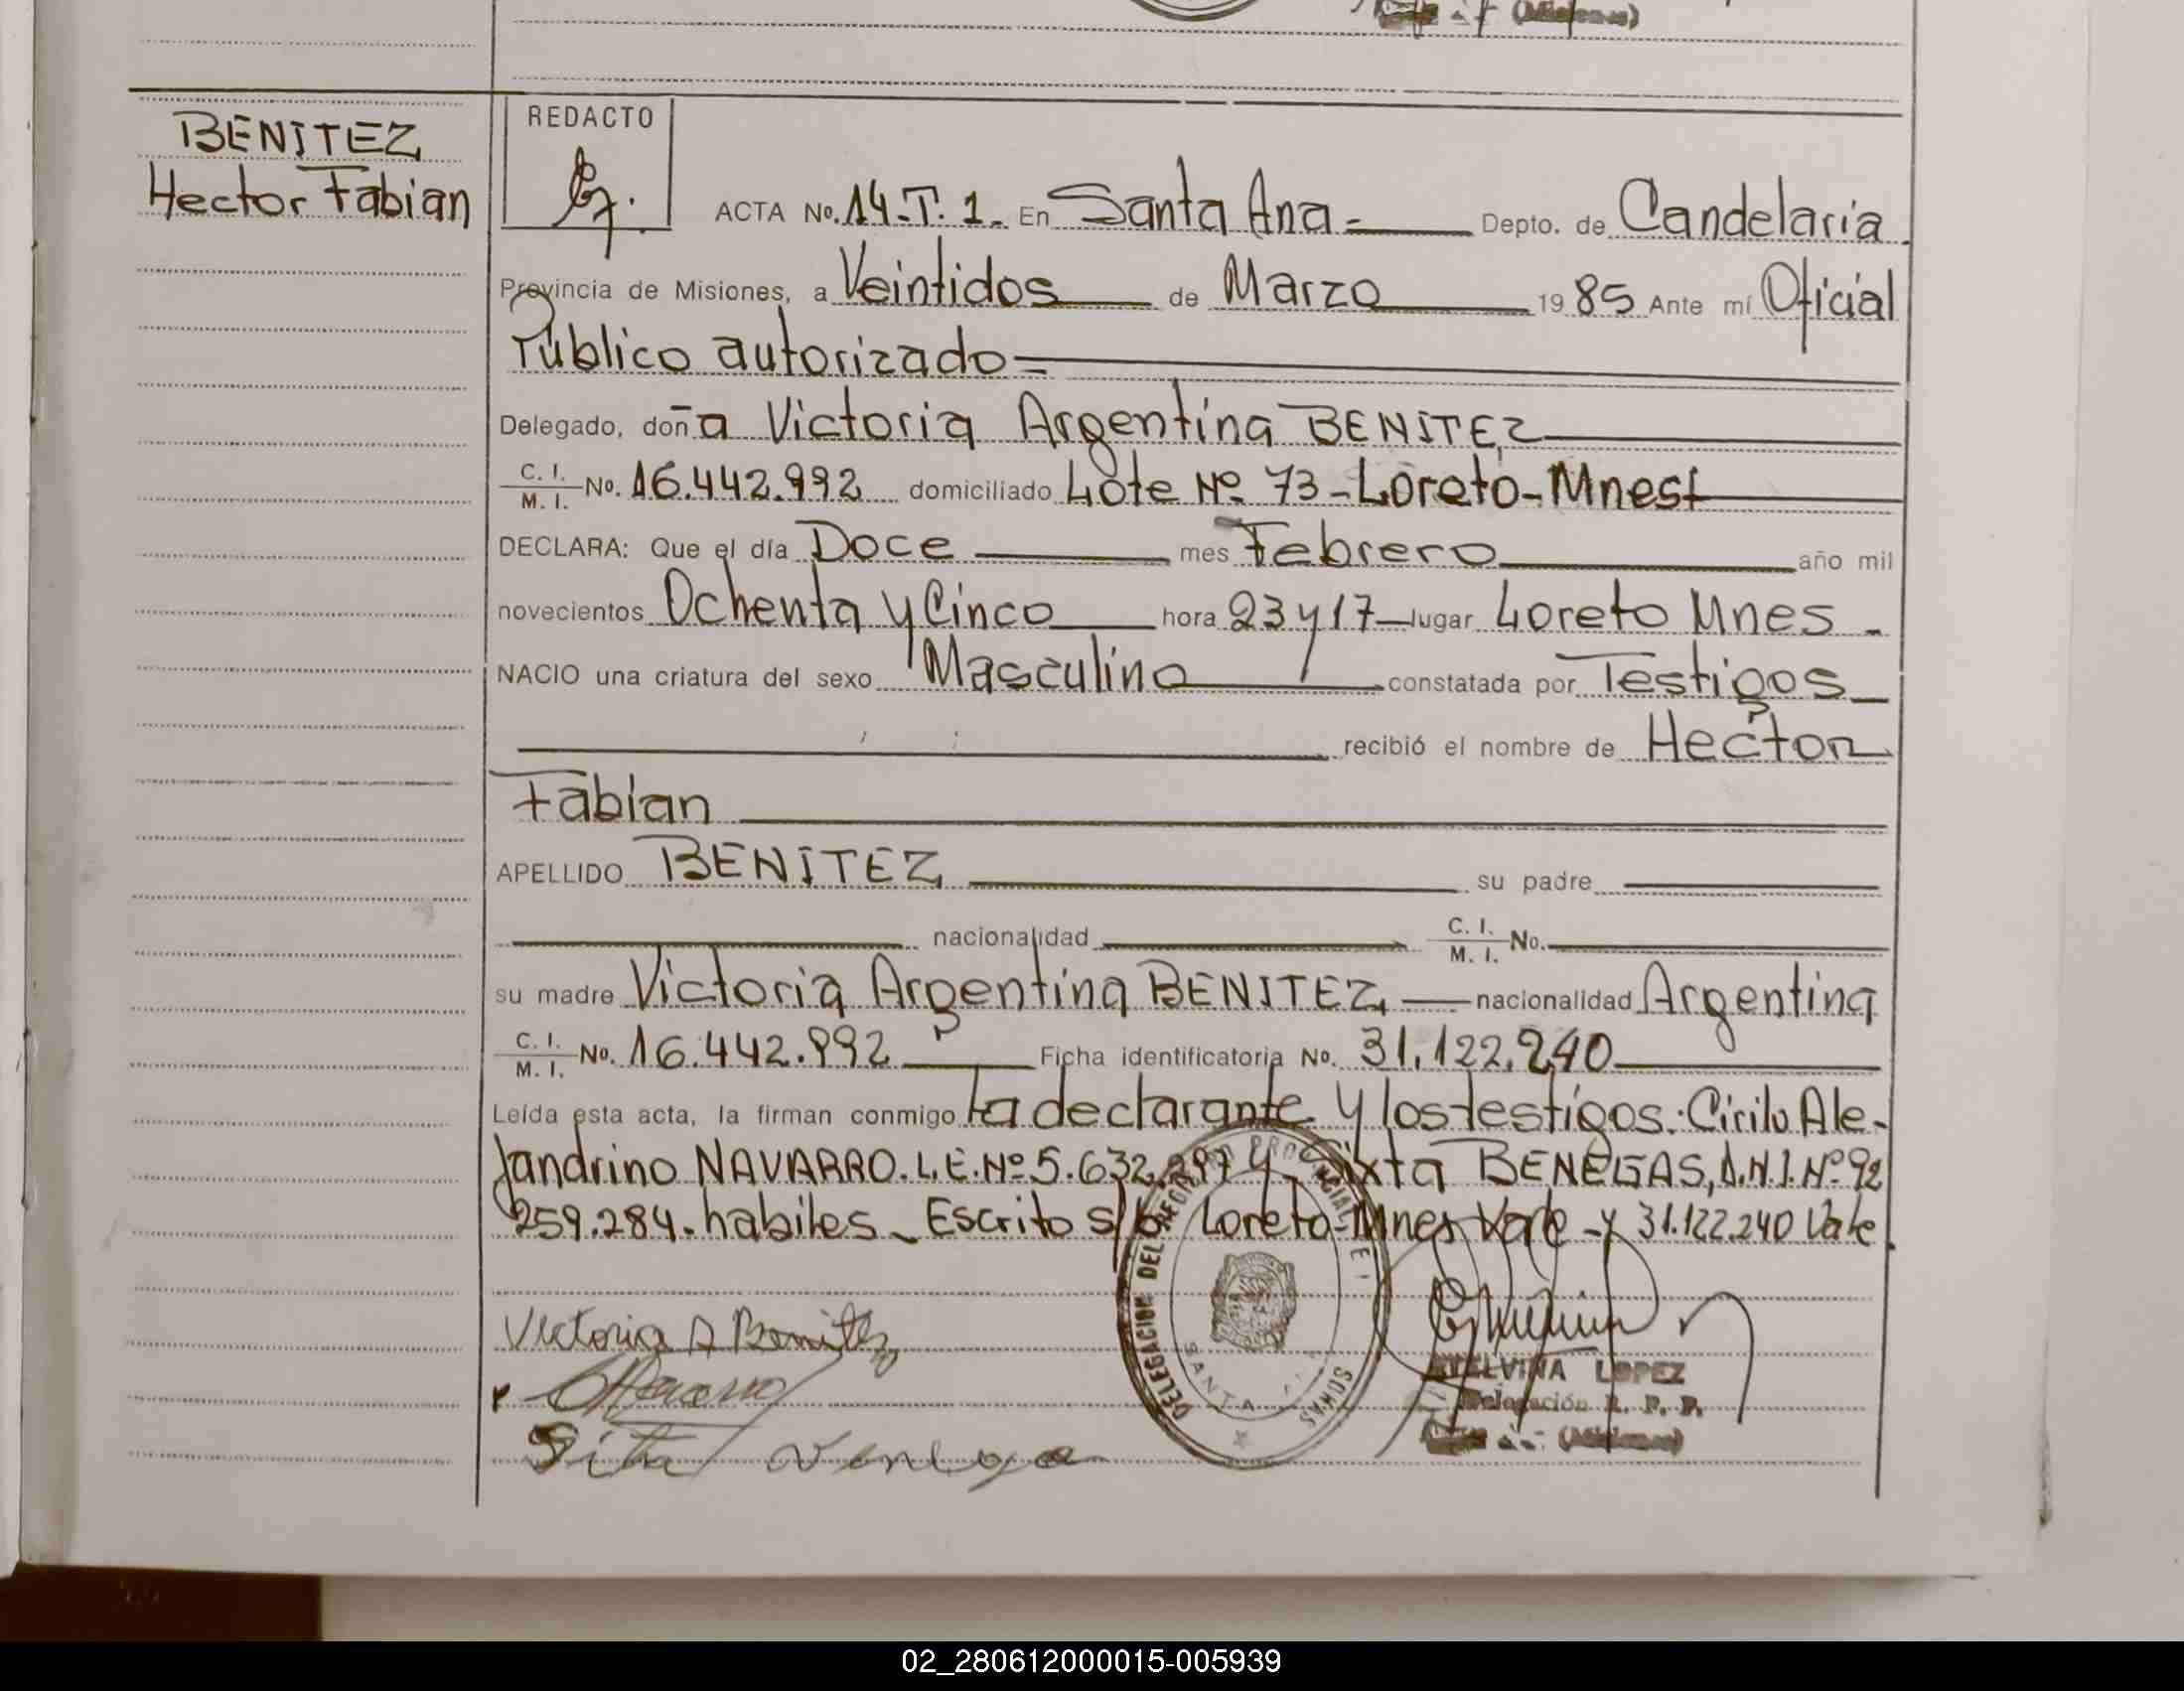 (Misiones)
BENITEZ
Hector Fabian
REDACTO
ACTA No. 14-T. 1. En Santa Ana = Depto. de Candelaria
Provincia de Misiones, a Veintidos de Marzo 1985 Ante mí Oficial
Público autorizado =
Delegado, doña Victoria Argentina BENITEZ
C. I. / M. I. No. 16.442.992 domiciliado Lote Nº 73 - Loreto - Mnes
DECLARA: Que el día Doce mes Febrero año mil
novecientos Ochenta y Cinco hora 23 y 17 lugar Loreto Mnes -
NACIO una criatura del sexo Masculino constatada por Testigos
recibió el nombre de Hector
Fabian
APELLIDO BENITEZ su padre
nacionalidad C. I. / M. I. No.
su madre Victoria Argentina BENITEZ, nacionalidad Argentina
C. I. / M. I. No. 16.442.992 Ficha identificatoria No. 31.122.240
Leída esta acta, la firman conmigo La declarante y los testigos: Cirilo Ale-
jandrino NAVARRO. L.E. Nº 5.632.297 y Sixta BENEGAS, D.N.I. Nº 92
259.284. habiles - Escrito s/b: Loreto - Mnes Vale - y 31.122.240 Vale
Victoria A Benitez
DELEGACION DEL REGISTRO PROVINCIAL DE
SANTA
ETELVINA LOPEZ
Delegación R. P. P.
(Misiones)
02_280612000015-005939